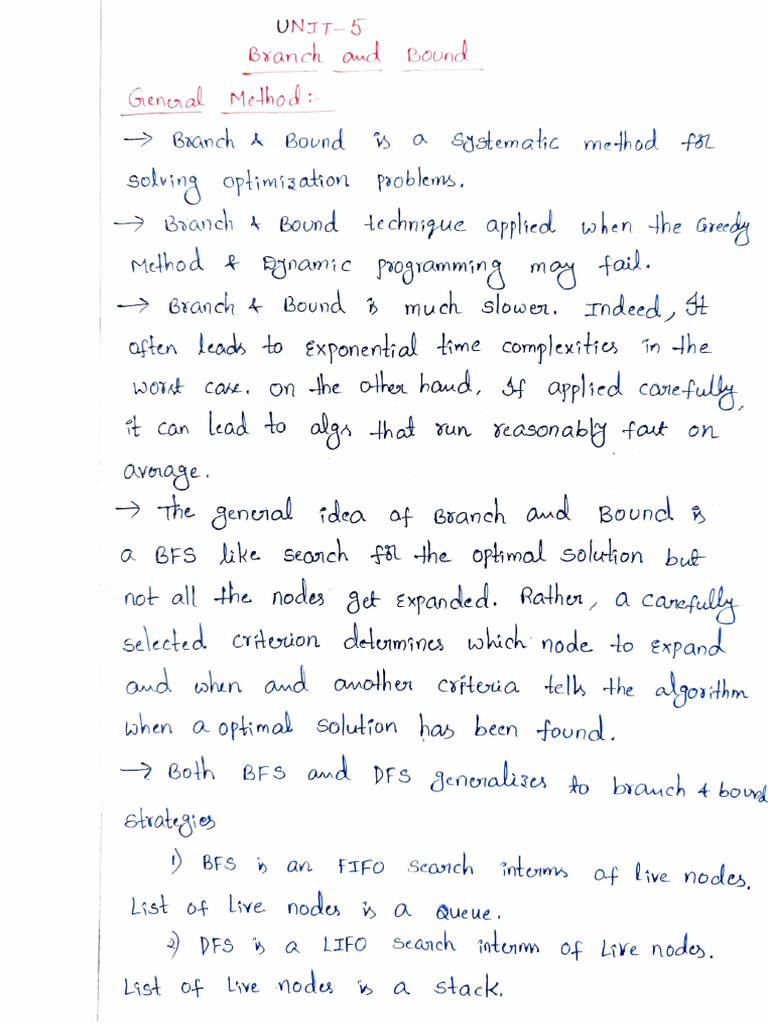 UNIT-5
Branch and Bound
General Method:-
→ Branch & Bound is a systematic method for
solving optimization problems.
→ Branch & Bound technique applied when the Greedy
Method & Dynamic programming may fail.
→ Branch & Bound is much slower. Indeed, It
often leads to exponential time complexities in the
worst case. on the other hand, If applied carefully,
it can lead to algs that run reasonably fast on
average.
→ The general idea of Branch and Bound is
a BFS like search for the optimal solution but
not all the nodes get expanded. Rather, a carefully
selected criterion determines which node to expand
and when and another criteria tells the algorithm
when a optimal solution has been found.
→ Both BFS and DFS generalizes to branch & bound
strategies
1) BFS is an FIFO search interms of live nodes.
List of live nodes is a Queue.
2) DFS is a LIFO search interms of Live nodes.
List of Live nodes is a stack.